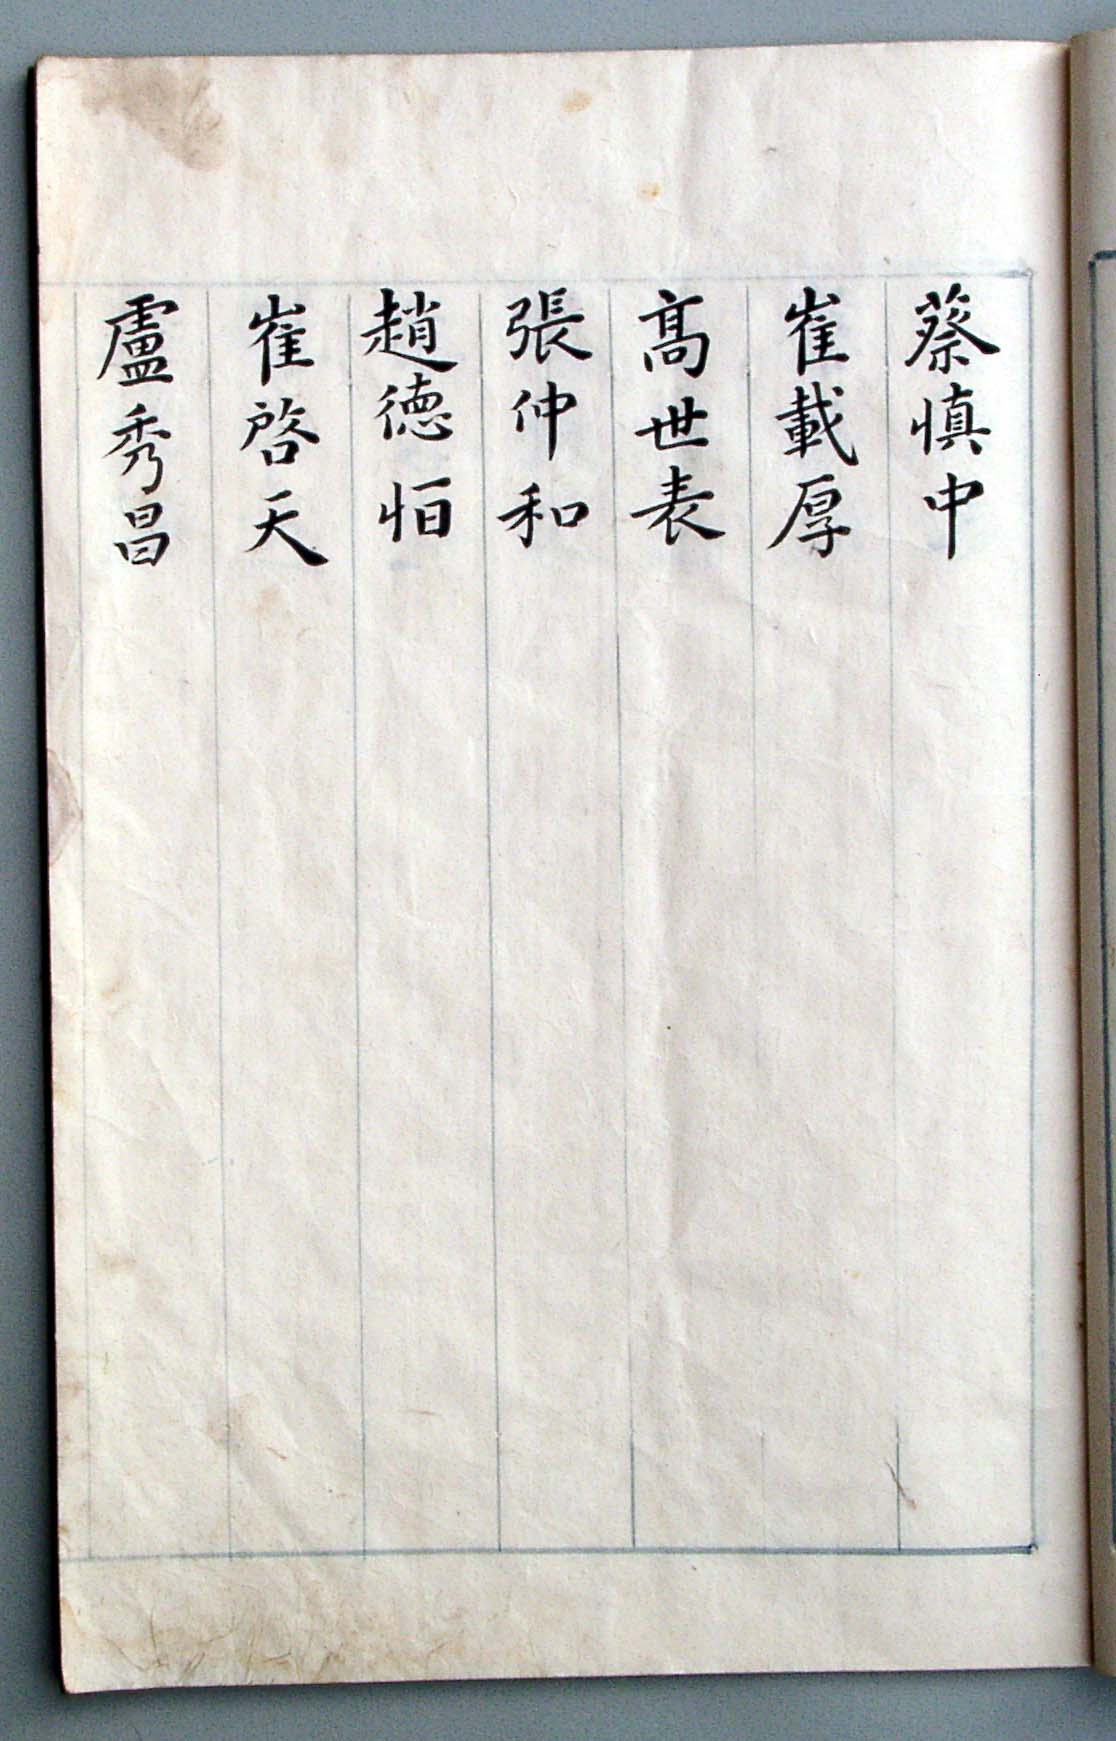 蔡愼中
崔載厚
髙世表
張仲和
趙德恒
崔啓天
盧秀昌